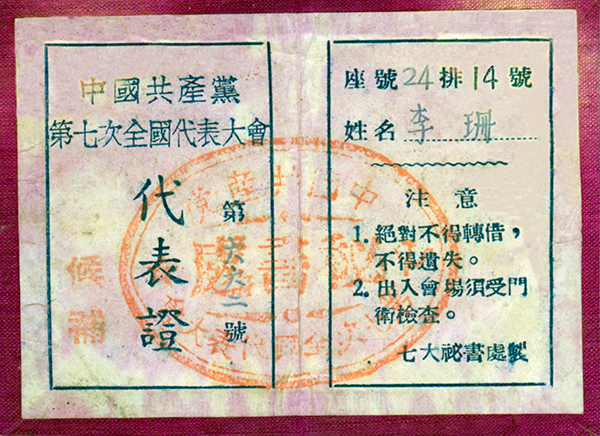 中國共產黨
第七次全國代表大會
代表證
第六六二號
候補
座號24排14號
姓名 李珊
注意
1. 絕對不得轉借，
不得遺失。
2. 出入會場須受門
衛檢查。
七大祕書處製